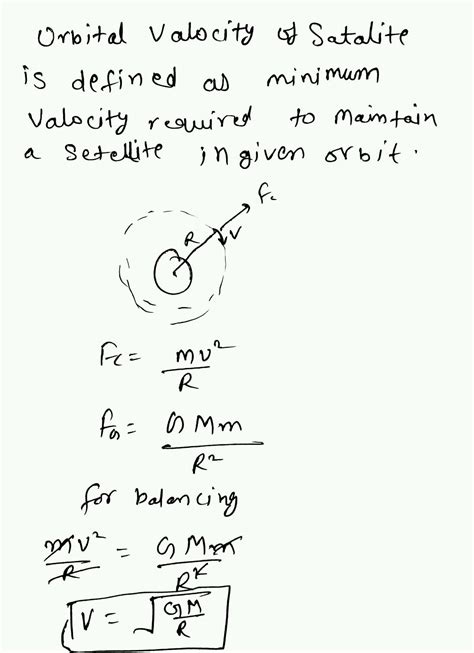 Orbital Valocity of Satalite
is defined as minimum
Valocity required to maintain
a Setellite in given orbit.
Fc
R
V
Fc = mv²/R
FG = GMm/R²
for balancing
mv²/R = GMm/R²
V = √(GM/R)